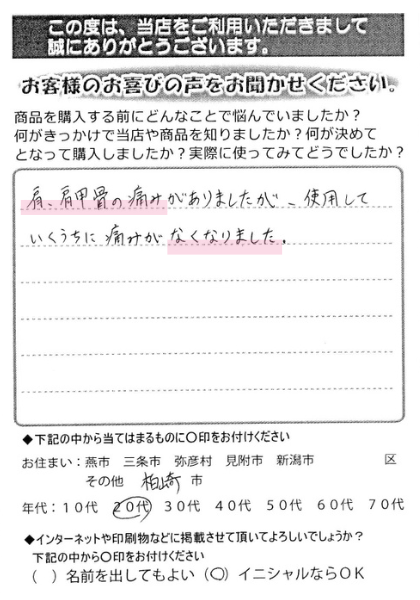 この度は、当店をご利用いただきまして
誠にありがとうございます。
お客様のお喜びの声をお聞かせください。
商品を購入する前にどんなことで悩んでいましたか？
何がきっかけで当店や商品を知りましたか？何が決めて
となって購入しましたか？実際に使ってみてどうでしたか？
肩、肩甲骨の痛みがありましたが、使用して
いくうちに痛みがなくなりました。
◆下記の中から当てはまるものに〇印をお付けください
お住まい：燕市　三条市　弥彦村　見附市　新潟市　　　　区
その他　柏崎　市
年代：１０代　２０代　３０代　４０代　５０代　６０代　７０代
◆インターネットや印刷物などに掲載させて頂いてよろしいでしょうか？
下記の中から〇印をお付けください
（　）名前を出してもよい（〇）イニシャルならＯＫ